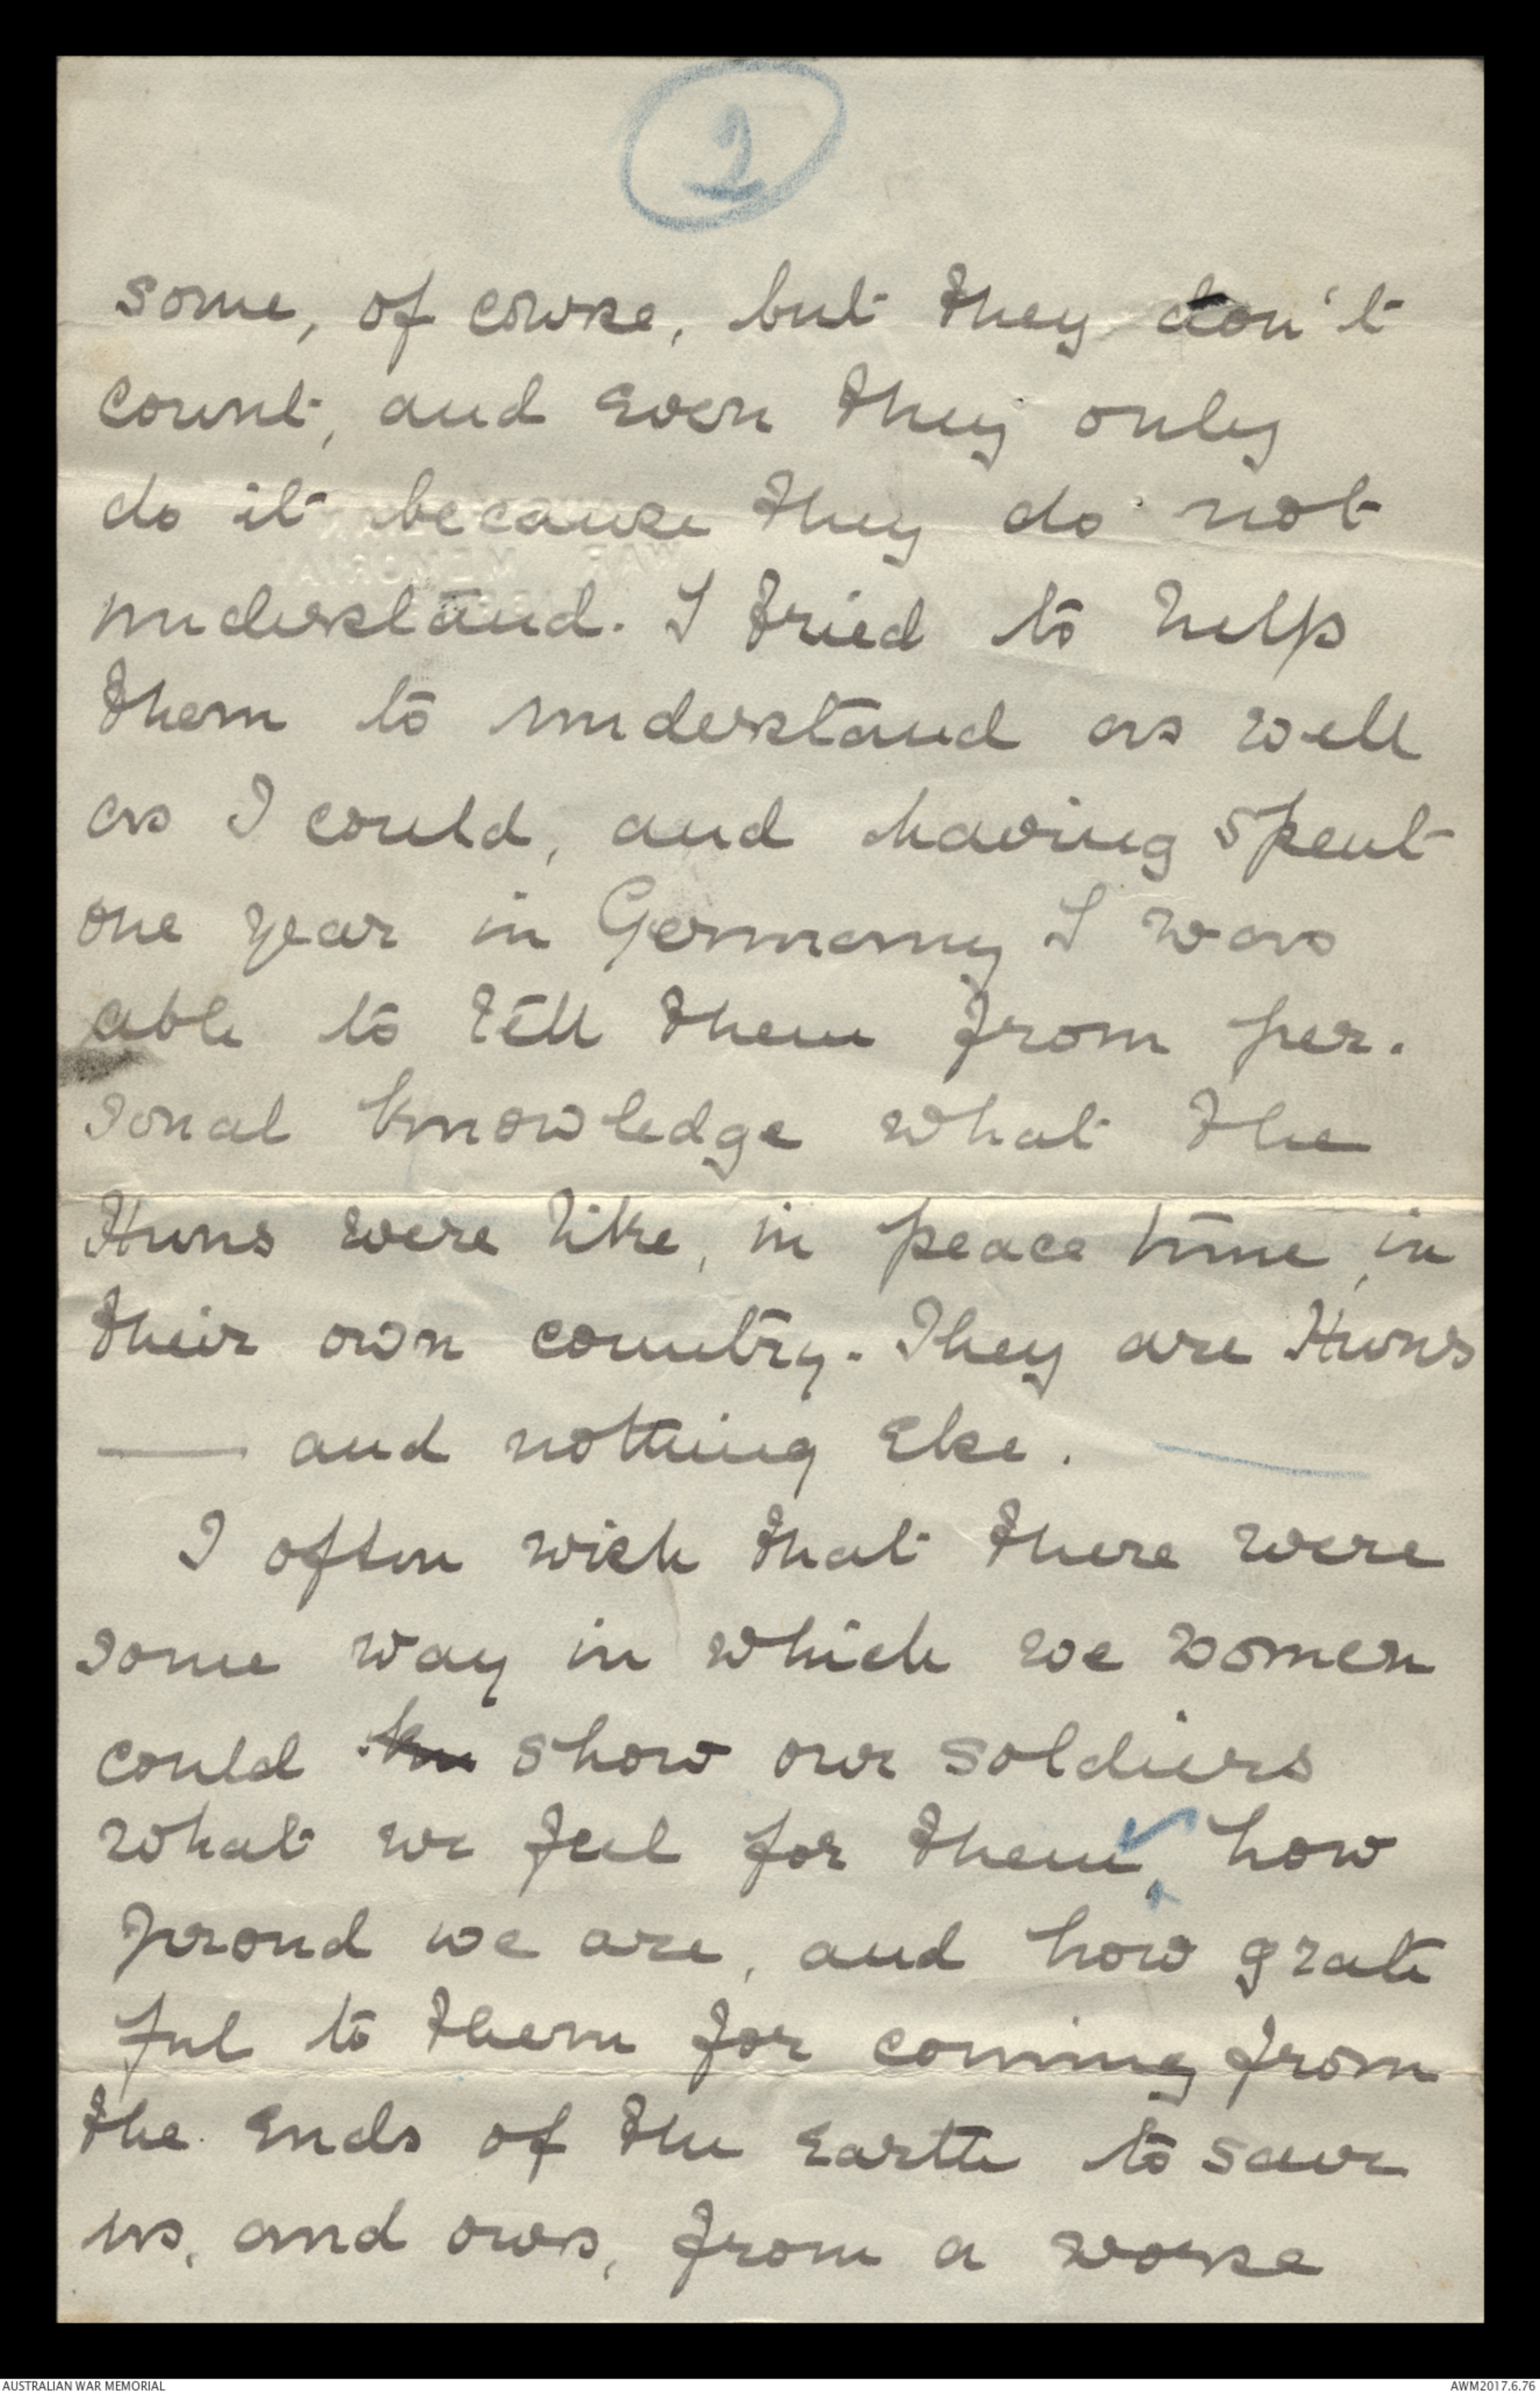 2
some, of course, but they don't
count, and even they only
do it because they do not
understand. I tried to help
them to understand as well
as I could, and having spent
one year in Germany I was
able to tell them from per.
sonal knowledge what the
Huns were like, in peace time, in
their own country. They are Huns
— and nothing else. —
I often wish that there were
some way in which we women
could show our soldiers
what we feel for them, how
proud we are, and how grate
ful to them for coming from
the ends of the earth to save
us, and ours, from a worse
AUSTRALIAN WAR MEMORIAL
AWM2017.6.76